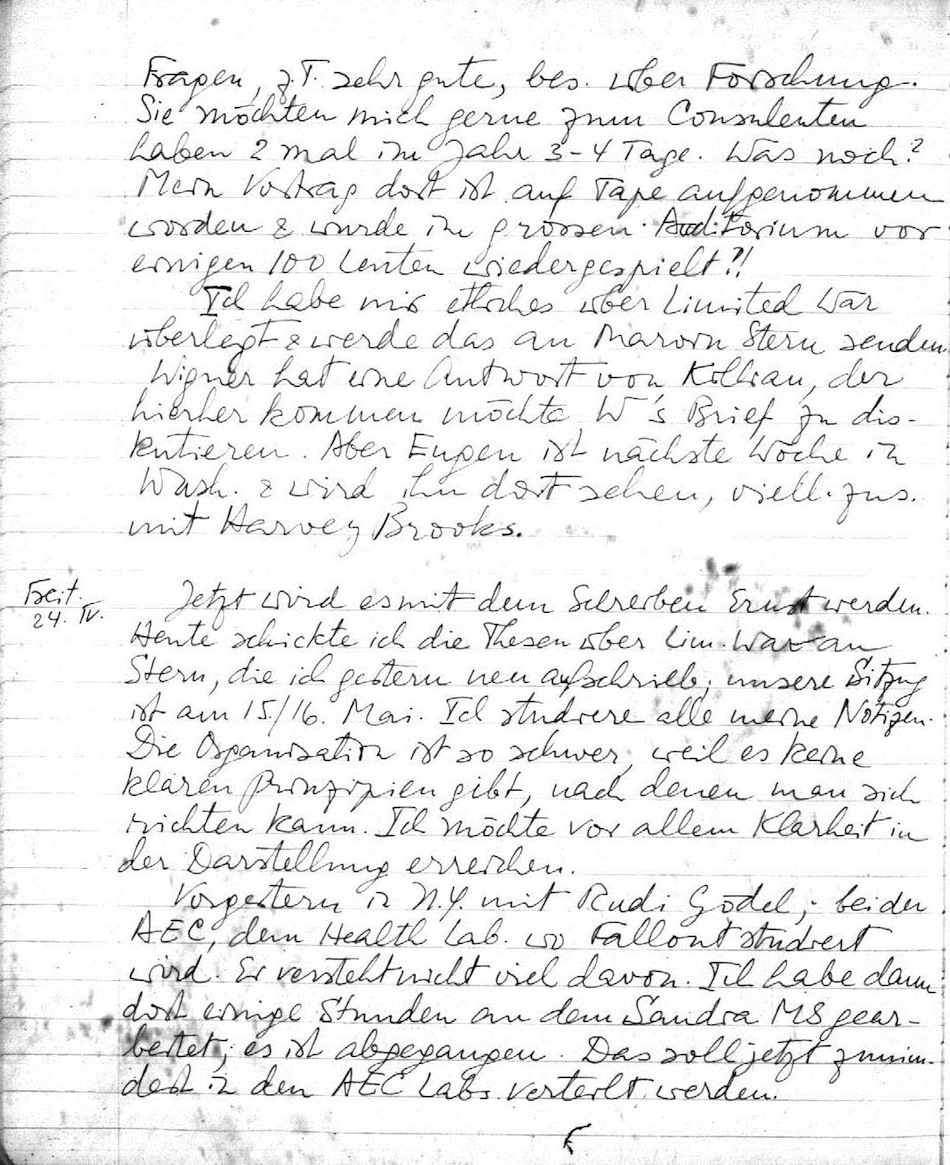 Fragen, z.T. sehr gute, bes. über Forschung.
Sie möchten mich gerne zum Consulenten
haben 2 mal im Jahr 3-4 Tage. Was noch?
Mein Vortrag dort ist auf Tape aufgenommen
worden & wurde im grossen Auditorium vor
einigen 100 Leuten wiedergespielt?!
Ich habe mir etliches über Limited War
überlegt & werde das an Marvin Stern senden.
Wigner hat eine Antwort von Killian, der
hierher kommen möchte W's Brief zu dis-
kutieren. Aber Eugen ist nächste Woche in
Wash. & wird ihn dort sehen, viell. zus.
mit Harvey Brooks.
Freit.
24. IV.
Jetzt wird es mit dem Schreiben Ernst werden.
Heute schickte ich die Thesen über Lim. War an
Stern, die ich gestern neu aufschrieb; unsere Sitzung
ist am 15/16. Mai. Ich studiere alle meine Notizen.
Die Organisation ist so schwer, weil es keine
klaren Prinzipien gibt, nach denen man sich
richten kann. Ich möchte vor allem Klarheit in
der Darstellung erreichen.
Vorgestern in N.Y. mit Rudi Gödel; bei der
AEC, dem Health Lab. wo Fallout studiert
wird. Er versteht nicht viel davon. Ich habe dann
dort einige Stunden an dem Sandia MS gear-
beitet; es ist abgegangen. Das soll jetzt zumin-
dest in den AEC Labs. verteilt werden.